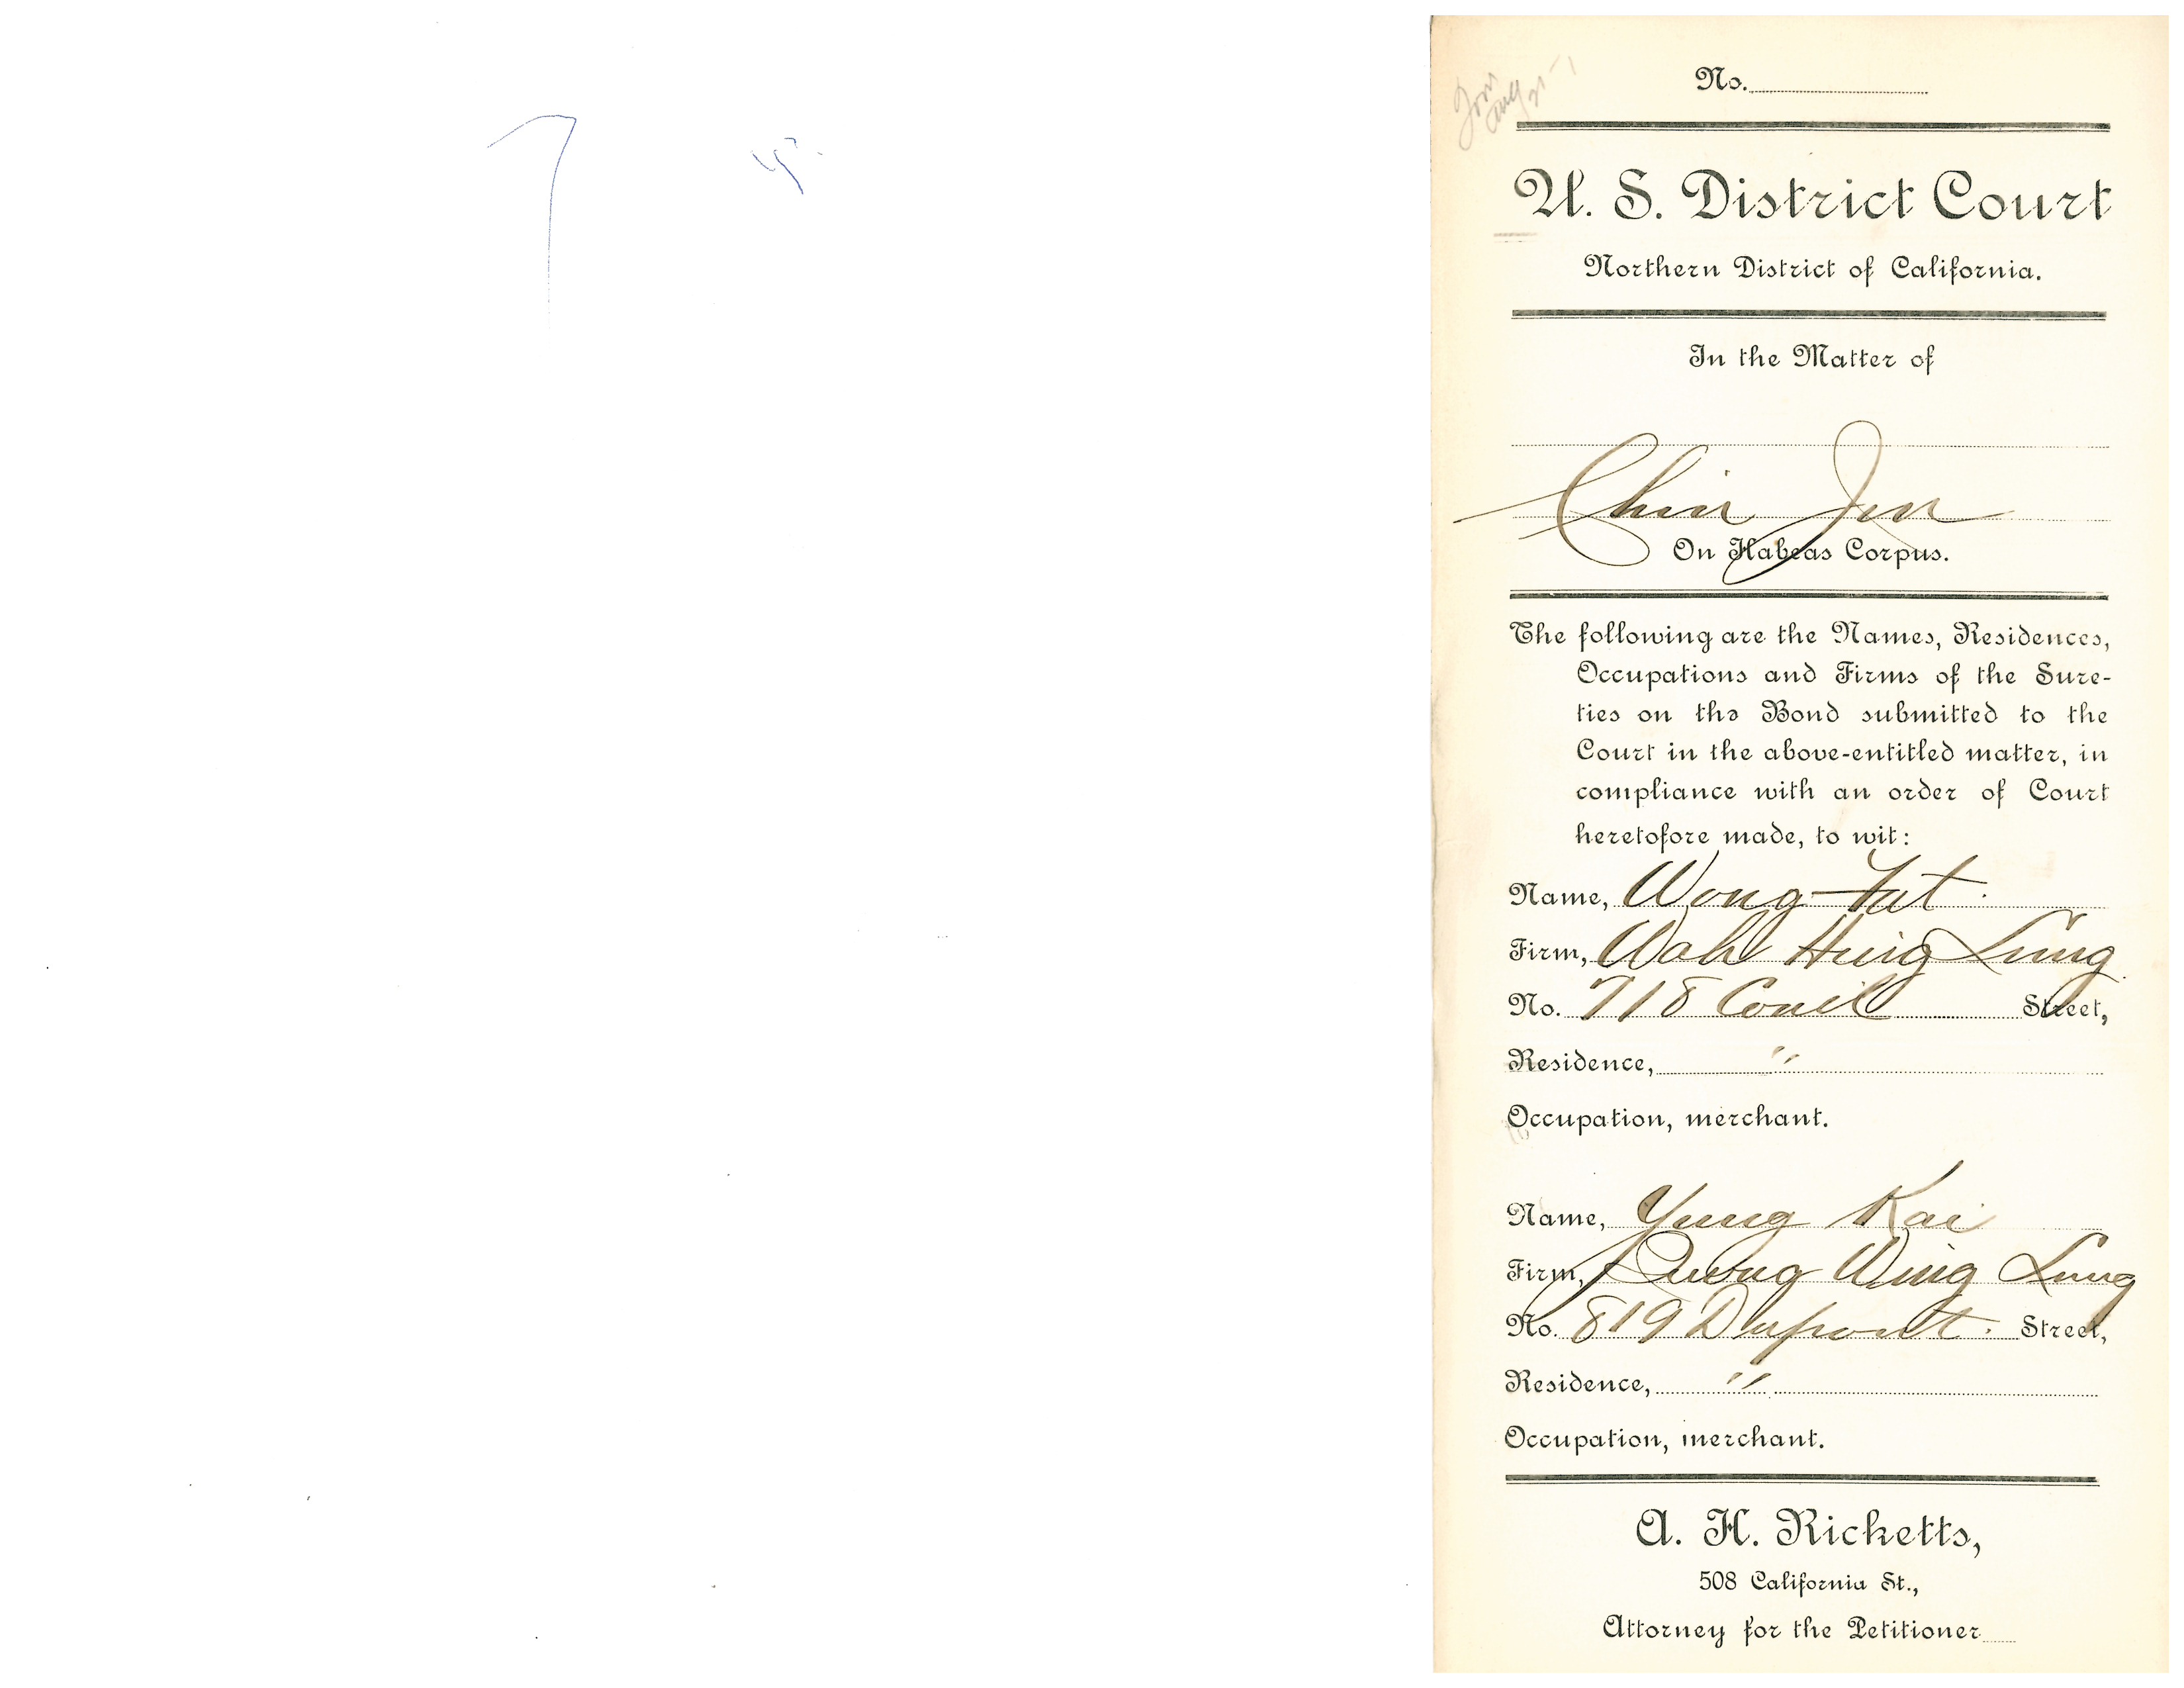 No.
U. S. District Court
Northern District of California.
In the Matter of
Chin Jun
On Habeas Corpus.
The following are the Names, Residences,
Occupations and Firms of the Sure-
ties on the Bond submitted to the
Court in the above-entitled matter, in
compliance with an order of Court
heretofore made, to wit:
Name, Wong Fat
Firm, Wah Hing Lung
No. 718 Street,
Residence, "
Occupation, merchant.
Name, Yung Kai
Firm, Quong Wing Lung
No. 819 Dupont. Street,
Residence, "
Occupation, merchant.
A. H. Ricketts,
508 California St.,
Attorney for the Petitioner